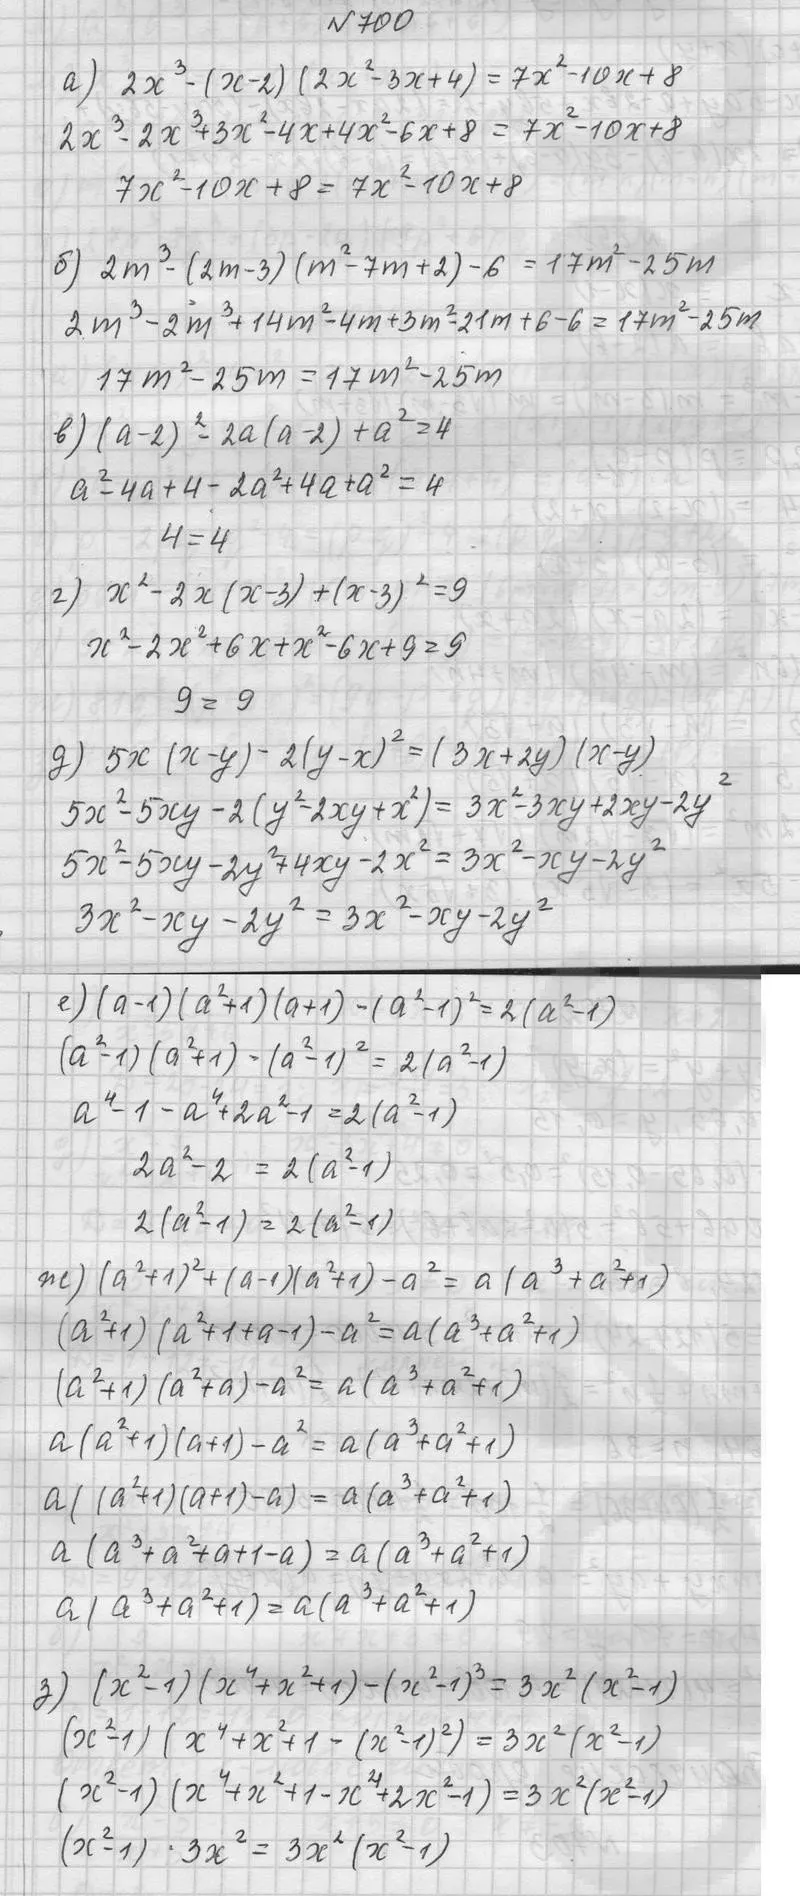 №700
а) 2x³-(x-2)(2x²-3x+4)=7x²-10x+8
2x³-2x³+3x²-4x+4x²-6x+8=7x²-10x+8
7x²-10x+8=7x²-10x+8
б) 2m³-(2m-3)(m²-7m+2)-6=17m²-25m
2m³-2m³+14m²-4m+3m²-21m+6-6=17m²-25m
17m²-25m=17m²-25m
в) (a-2)²-2a(a-2)+a²=4
a²-4a+4-2a²+4a+a²=4
4=4
г) x²-2x(x-3)+(x-3)²=9
x²-2x²+6x+x²-6x+9=9
9=9
д) 5x(x-y)-2(y-x)²=(3x+2y)(x-y)
5x²-5xy-2(y²-2xy+x²)=3x²-3xy+2xy-2y²
5x²-5xy-2y²+4xy-2x²=3x²-xy-2y²
3x²-xy-2y²=3x²-xy-2y²
е) (a-1)(a²+1)(a+1)-(a²-1)²=2(a²-1)
(a²-1)(a²+1)-(a²-1)²=2(a²-1)
a⁴-1-a⁴+2a²-1=2(a²-1)
2a²-2=2(a²-1)
2(a²-1)=2(a²-1)
ж) (a²+1)²+(a-1)(a²+1)-a²=a(a³+a²+1)
(a²+1)(a²+1+a-1)-a²=a(a³+a²+1)
(a²+1)(a²+a)-a²=a(a³+a²+1)
a(a²+1)(a+1)-a²=a(a³+a²+1)
a((a²+1)(a+1)-a)=a(a³+a²+1)
a(a³+a²+a+1-a)=a(a³+a²+1)
a(a³+a²+1)=a(a³+a²+1)
з) (x²-1)(x⁴+x²+1)-(x²-1)³=3x²(x²-1)
(x²-1)(x⁴+x²+1-(x²-1)²)=3x²(x²-1)
(x²-1)(x⁴+x²+1-x⁴+2x²-1)=3x²(x²-1)
(x²-1)·3x²=3x²(x²-1)